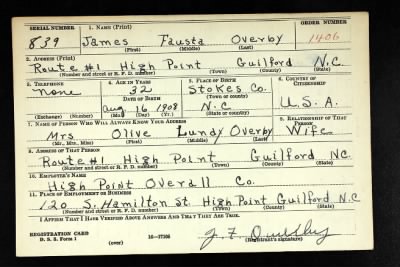 SERIAL NUMBER 1. NAME (Print) ORDER NUMBER
839 James Fausta Overby 1406
(First) (Middle) (Last)
2. ADDRESS (Print)
Route #1 High Point Guilford N.C.
(Number and street or R. F. D. number) (Town) (County) (State)
3. TELEPHONE 4. AGE IN YEARS 5. PLACE OF BIRTH 6. COUNTRY OF CITIZENSHIP
None 32 Stokes Co.
DATE OF BIRTH (Town or county)
Aug 16 1908 N.C U.S.A.
(Exchange) (Number) (Mo.) (Day) (Yr.) (State or country)
7. NAME OF PERSON WHO WILL ALWAYS KNOW YOUR ADDRESS 8. RELATIONSHIP OF THAT PERSON
Mrs Olive Lunday Overby Wife
(Mr., Mrs., Miss) (First) (Middle) (Last)
9. ADDRESS OF THAT PERSON
Route #1 High Point Guilford NC
(Number and street or R. F. D. number) (Town) (County) (State)
10. EMPLOYER'S NAME
High Point Overall Co.
11. PLACE OF EMPLOYMENT OR BUSINESS
120 S. Hamilton St. High Point Guilford N.C
(Number and street or R. F. D. number) (Town) (County) (State)
I AFFIRM THAT I HAVE VERIFIED ABOVE ANSWERS AND THAT THEY ARE TRUE.
REGISTRATION CARD
D. S. S. Form 1 (over) 16—17105 (Registrant's signature)